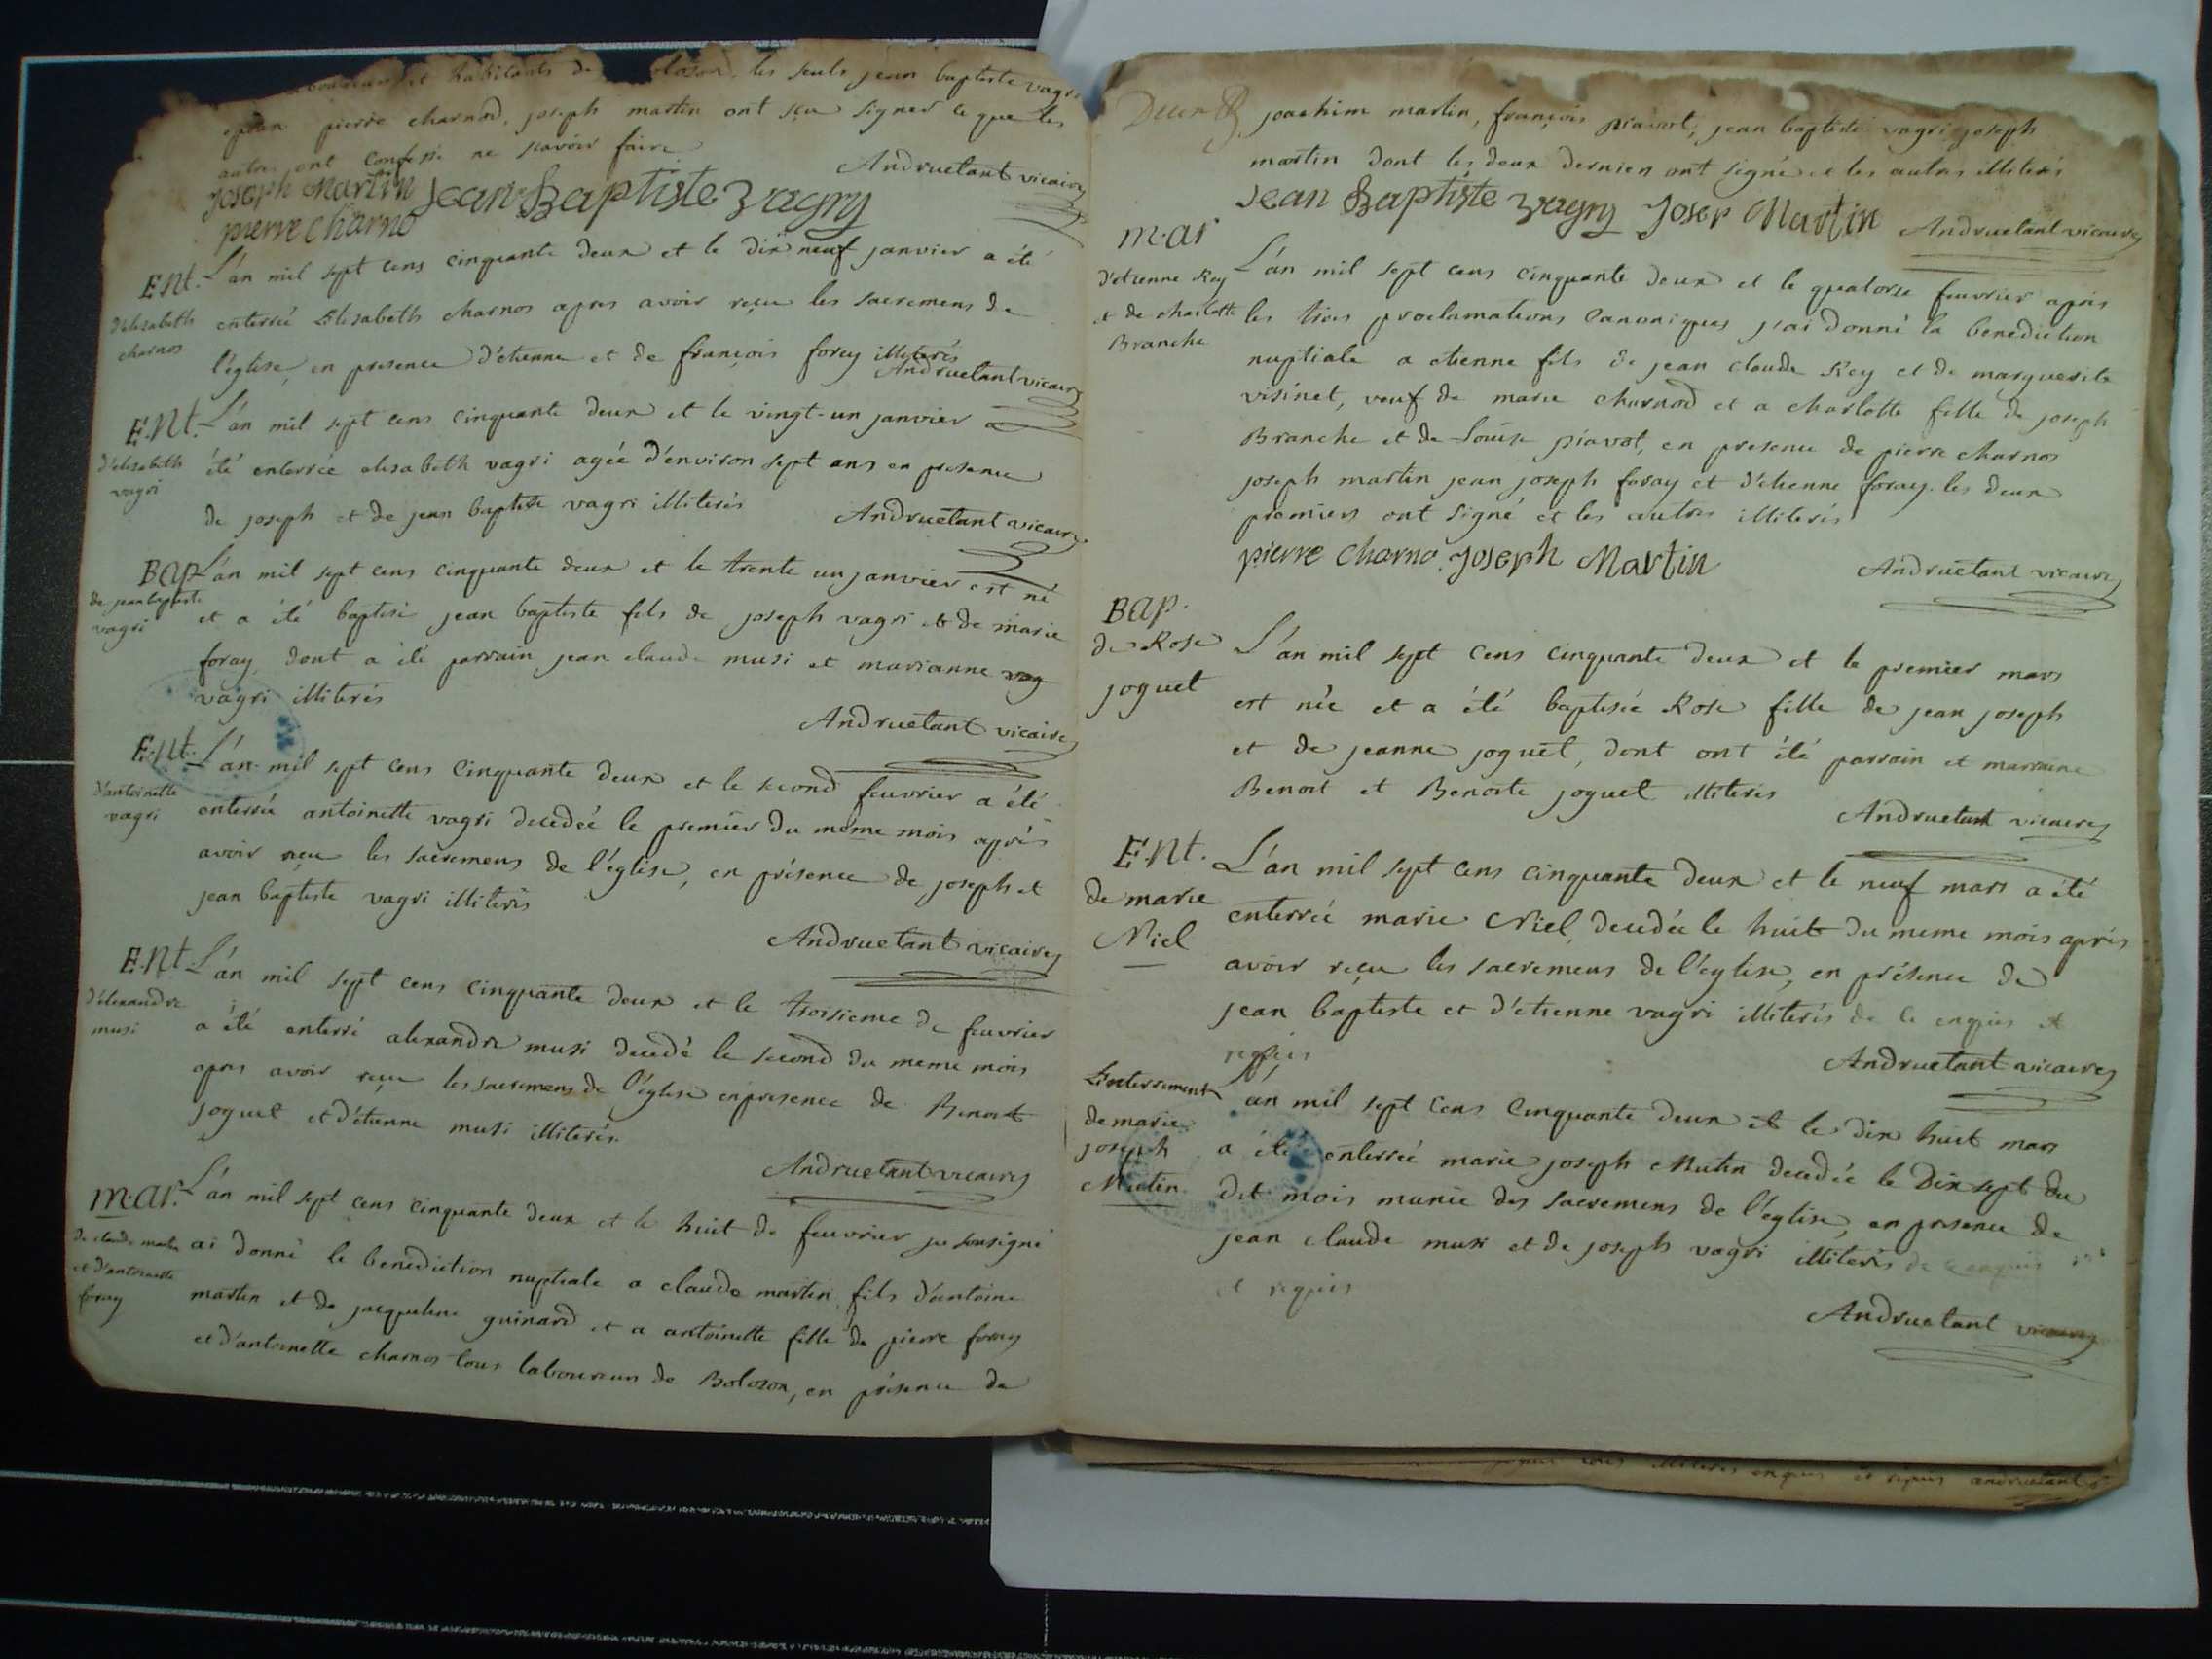 habitants de les seuls jean baptiste vagri
pierre charnod, joseph martin ont sçu signer ce que les
autres ont confessé ne scavoir faire
Andruetant vicaire
Joseph Martin Jean Baptiste Vagry
pierre Charno
Ent.
d'elisabeth
charnos
L'an mil sept cens cinquante deux et le dix neuf janvier a été
enterrée Elisabeth charnos apres avoir reçu les sacremens de
l'église, en presence d'etienne et de françois forey illiterés
Andruetant vicaire
Ent.
d'elisabeth
vagri
L'an mil sept cens cinquante deux et le vingt-un janvier a
été enterrée elisabeth vagri agée d'environ sept ans en presence
de joseph et de jean baptiste vagri illiterés
Andruetant vicaire
Bap
de jean baptiste
vagri
L'an mil sept cens cinquante deux et le trente un janvier est né
et a été baptisé jean baptiste fils de joseph vagri et de marie
foray, dont a été parrain jean claude musi et marianne vag
vagri illiterés
Andruetant vicaire
Ent.
d'antoinette
vagri
L'an mil sept cens cinquante deux et le second feuvrier a été
enterrée antoinette vagri decedée le premier du même mois après
avoir reçu les sacremens de l'église, en présence de joseph et
jean baptiste vagri illiterés
Andruetant vicaire
Ent.
d'alexandre
musi
L'an mil sept cens cinquante deux et le troisieme de feuvrier
a été enterré alexandre musi decedé le second du meme mois
apres avoir reçu les sacremens de l'église en presence de Benoit
joguet et d'étienne musi illiterés.
Andruetant vicaire
mar.
de claude martin
et d'antoinette
foray
L'an mil sept cens cinquante deux et le huit de feuvrier je sousigné
ai donné la benediction nuptiale a claude martin fils d'antoine
martin et de jacqueline guinard et a antoinette fille de pierre foray
et d'antoinette charnos tous laboureurs de Bolozon, en présence de
joachim martin, françois piavot, jean baptiste vagri joseph
martin dont les deux derniers ont signé et les autres illiterés
Jean Baptiste Vagry Josep Martin
Andruetant vicaire
mar
d'etienne Rey
et de charlotte
Branche
L'an mil sept cens cinquante deux et le quatorze feuvrier après
les trois proclamations Canoniques j'ai donné la benediction
nuptiale a etienne fils de jean claude Rey et de marguerite
visinet, veuf de marie charnod et a charlotte fille de joseph
Branche et de Louise piavot, en presence de pierre charnos
joseph martin jean joseph foray et d'etienne foray. les deux
premiers ont signé et les autres illiterés
pierre Charno. Joseph Martin
Andruetant vicaire
Bap.
de Rose
joguet
L'an mil sept cens cinquante deux et le premier mars
est née et a été baptisée Rose fille de jean joseph
et de jeanne joguet, dont ont été parrain et marraine
Benoit et Benoite joguet illiterés
Andruetant vicaire
Ent.
de marie
Niel
L'an mil sept cens cinquante deux et le neuf mars a été
enterrée marie Niel, decedée le huit du meme mois après
avoir reçu les sacremens de l'eglise, en présence de
jean baptiste et d'étienne vagri illiterés de ce enquis et
requis
Andruetant vicaire
Enterrement
de marie
joseph
Mutin
L'an mil sept cens cinquante deux et le dix huit mars
a été enterrée marie joseph Mutin decedée le dix sept du
dit mois munie des sacremens de l'église, en presence de
jean claude musi et de joseph vagri illiterés de ce enquis
et requis
Andruetant vicaire
illiterés enquis et requis andruetant